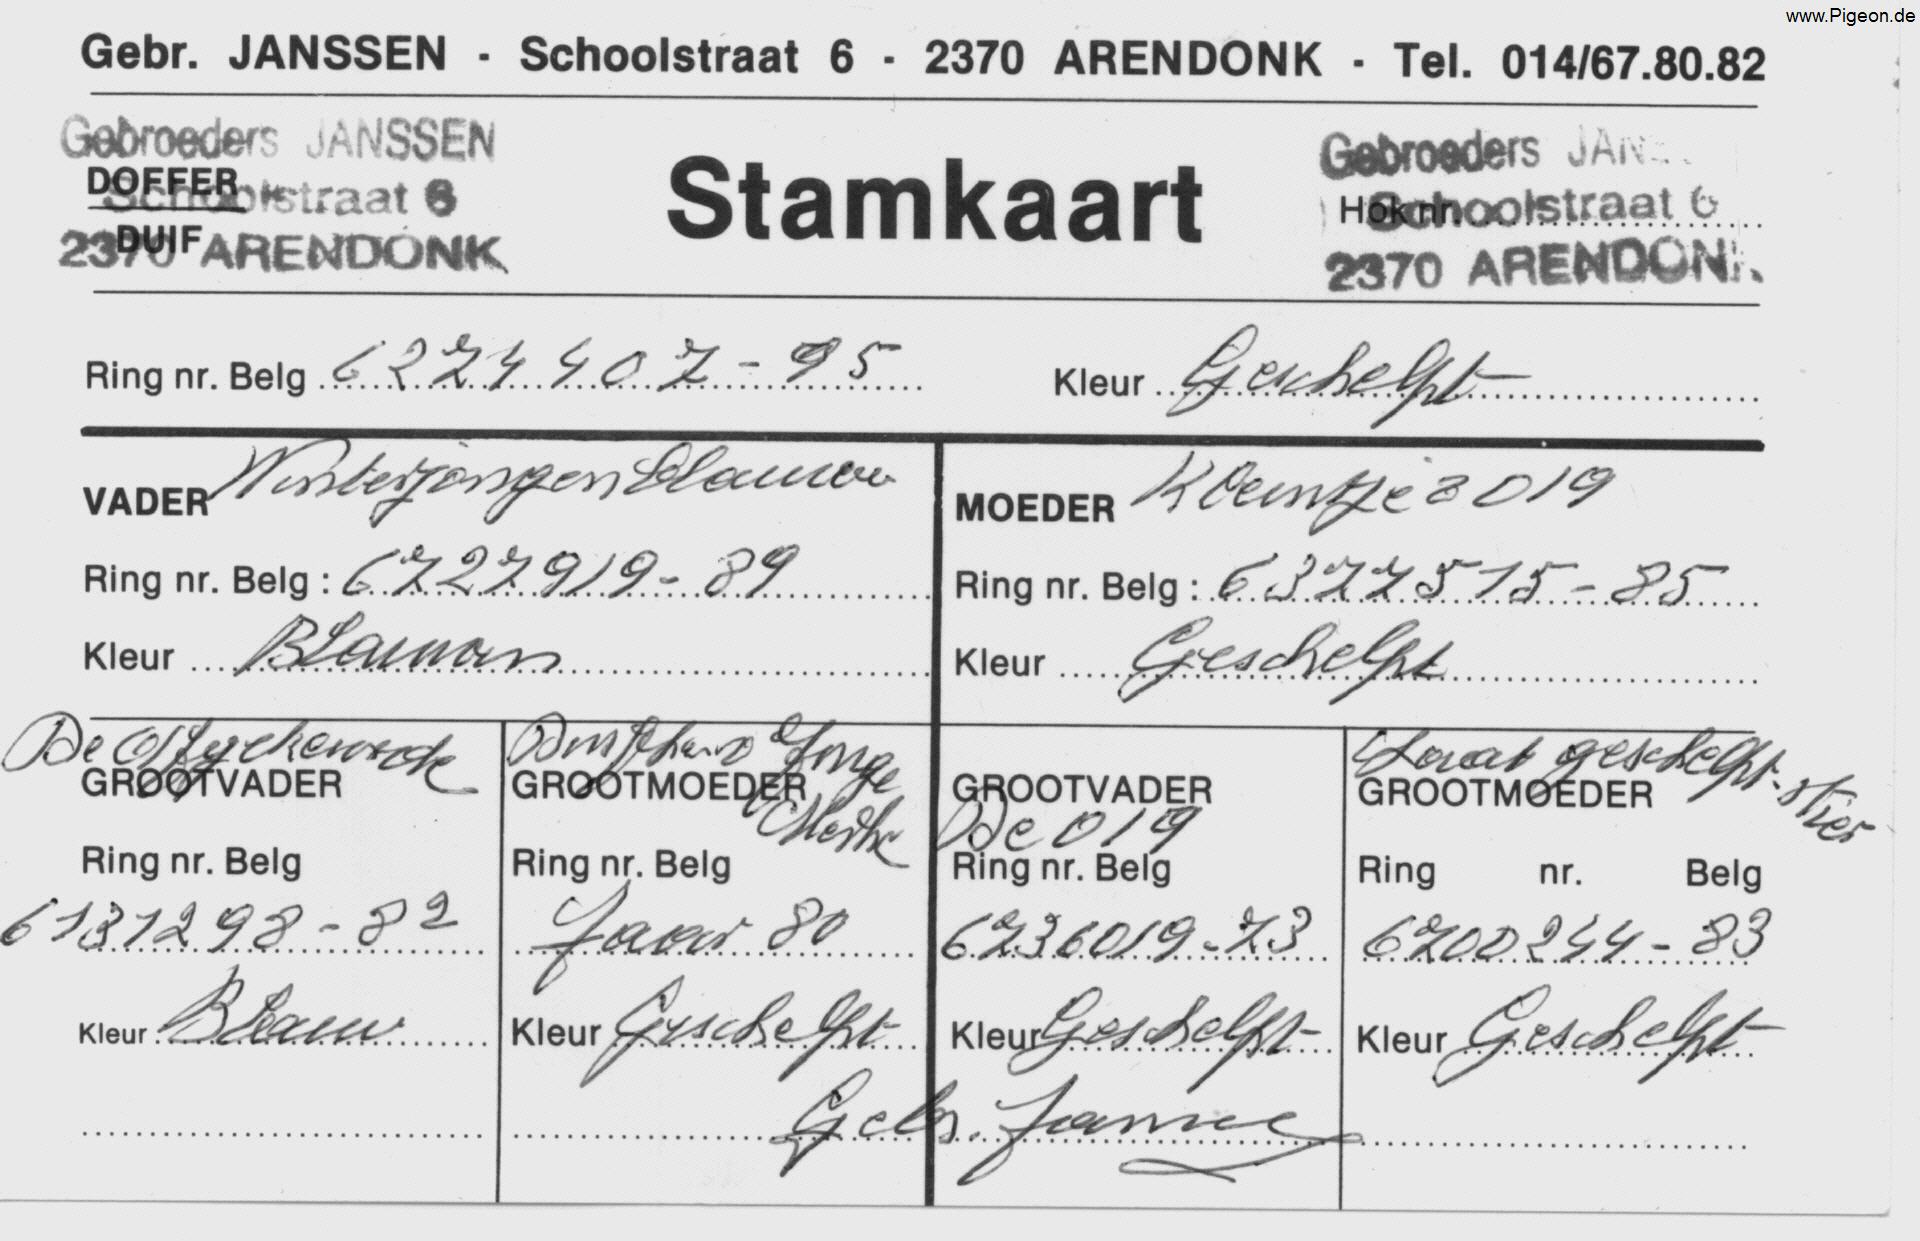 www.Pigeon.de
Gebr. JANSSEN - Schoolstraat 6 - 2370 ARENDONK - Tel. 014/67.80.82
Gebroeders JANSSEN
DOFFER
Schoolstraat 6
DUIF
2370 ARENDONK
Stamkaart
Gebroeders JAN
Hok nr.
Schoolstraat 6
2370 ARENDONK
Ring nr. Belg 6274407-95 Kleur Geschelpt
VADER Winterjongen
Ring nr. Belg : 6727919-89
Kleur
MOEDER Kleintje 019
Ring nr. Belg : 6377515-85
Kleur Geschelpt
De
GROOTVADER
Ring nr. Belg
6131298-82
Kleur Blauw
Jonge
GROOTMOEDER
Merckx
Ring nr. Belg
Jaar 80
Kleur Geschelpt
GROOTVADER
De 019
Ring nr. Belg
6736019-73
Kleur Geschelpt
geschelpt-stier
GROOTMOEDER
Ring nr. Belg
6700244-83
Kleur Geschelpt
Gebr. Janssen